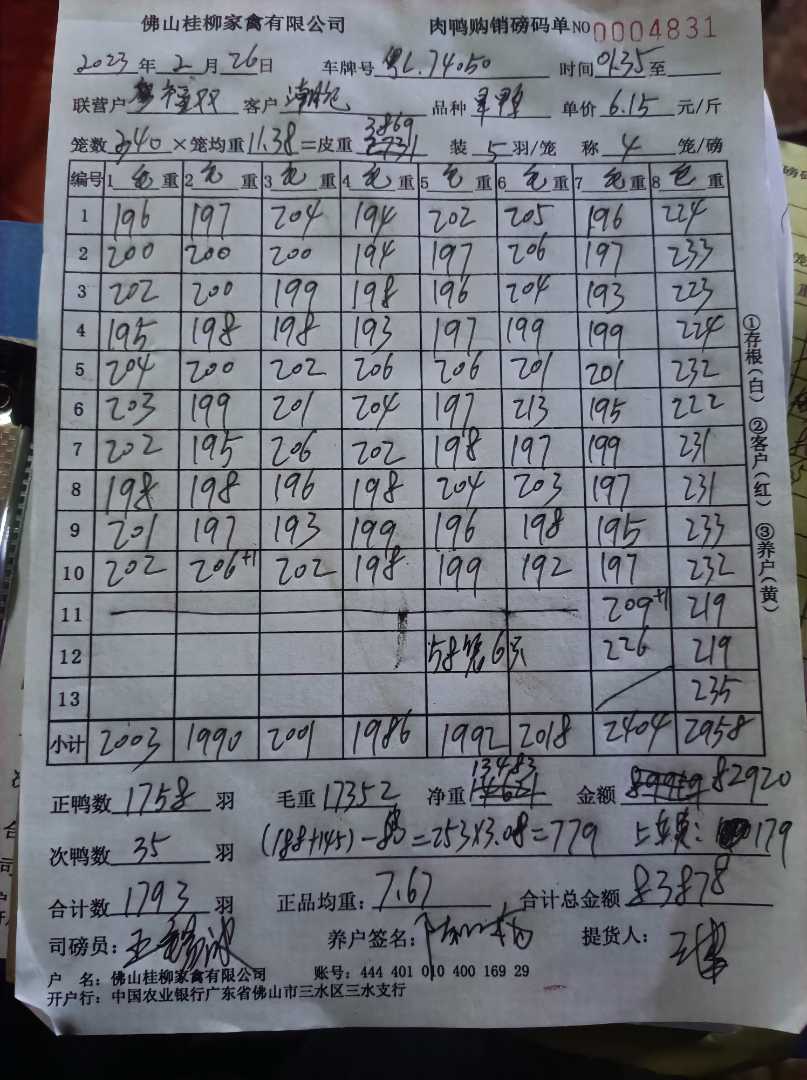 佛山桂柳家禽有限公司 肉鸭购销磅码单 NO 0004831
2023 年 2 月 26 日 车牌号 粤L.74050 时间 0135 至
联营户 客户 品种 单价 6.15 元/斤
笼数 340 × 笼均重 11.38 = 皮重 3869 装 5 羽/笼 称 4 笼/磅
编号 1 毛 重 2 毛 重 3 毛 重 4 毛 重 5 毛 重 6 毛 重 7 毛 重 8 毛 重
1 196 197 204 194 202 205 196 224
2 200 200 200 194 197 206 197 233
3 202 200 199 198 196 204 193 223
4 195 198 198 193 197 199 199 224
5 204 200 202 206 206 201 201 232
6 203 199 201 204 197 213 195 222
7 202 195 206 202 198 197 199 231
8 198 198 196 198 204 203 197 231
9 201 197 193 199 196 198 195 233
10 202 206+1 202 198 199 192 197 232
11 209+1 219
12 58笼6只 226 219
13 235
小计 2003 1990 2001 1986 1992 2018 2404 2958
正鸭数 1758 羽 毛重 17352 净重 13483 金额 82920
次鸭数 35 羽 (188+145)-80=253×3.08=779 上车费: 179
合计数 1793 羽 正品均重: 7.67 合计总金额 83878
司磅员: 养户签名: 提货人:
户 名: 佛山桂柳家禽有限公司 账号: 444 401 010 400 169 29
开户行: 中国农业银行广东省佛山市三水区三水支行
①存根(白) ②客户(红) ③养户(黄)